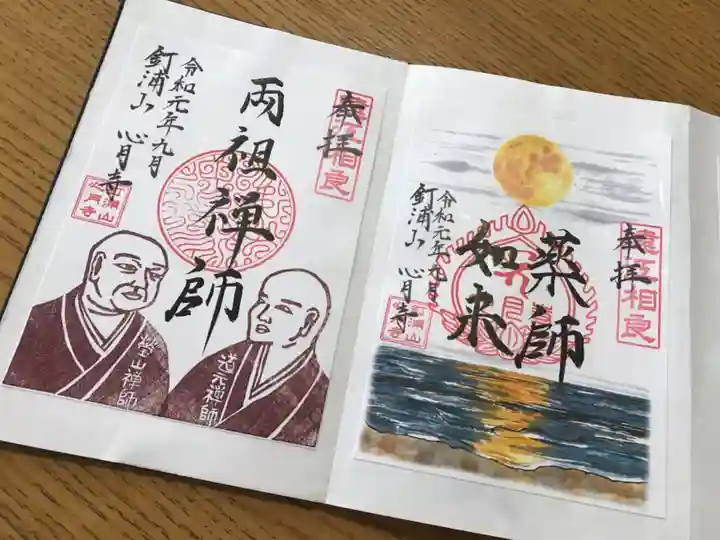 奉拝
遠江相良
両祖禅師
令和元年九月
釘浦山 心月寺
瑩山禅師
道元禅師
奉拝
遠江相良
薬師
如来
令和元年九月
釘浦山 心月寺